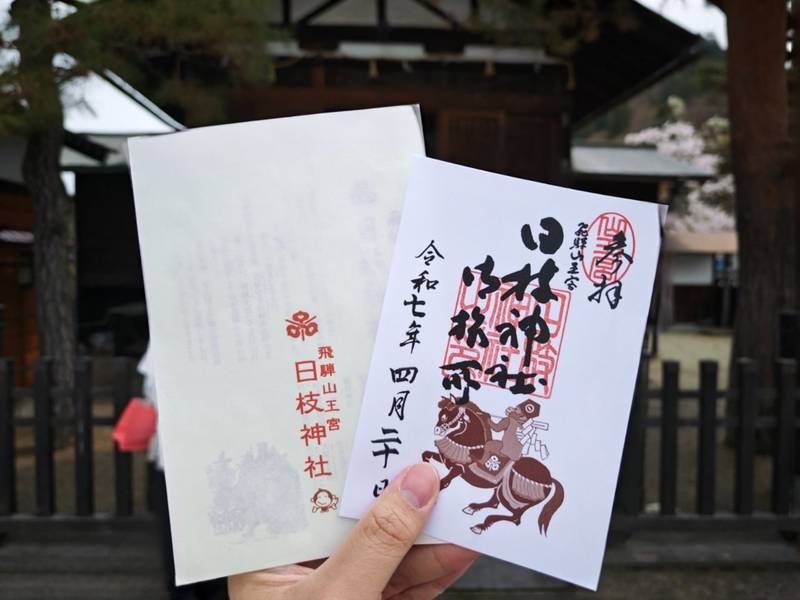 飛騨山王宮
日枝神社
参拝
飛騨山王宮
日枝神社
御旅所
令和七年 四月二十日